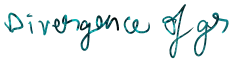 Divergence of gs